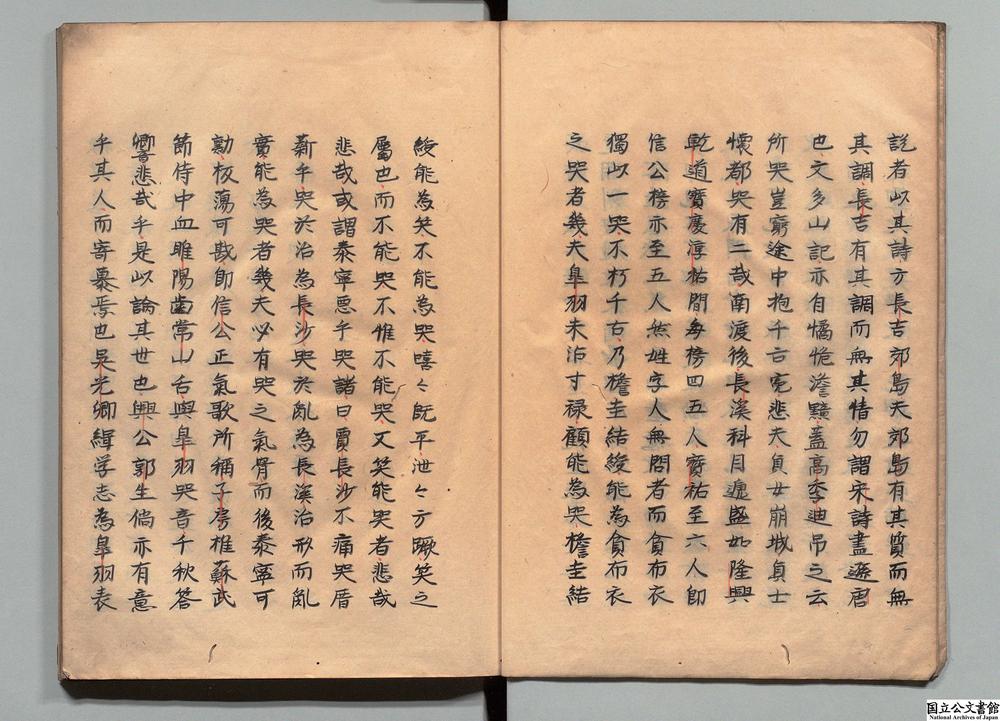 説者以其詩方長吉郊島夫郊島有其質而無
其調長吉有其調而無其情勿謂宋詩盡遜唐
也文多山記亦自憰恑澹黰蓋高季迪吊之云
所哭豈窮途中抱千古寃悲夫貞女崩城貞士
懷都哭有二哉南渡後長溪科目遞盛如隆興
乾道寳慶淳祐間每榜四五人寳祐至六人即
信公榜亦至五人然姓字人無問者而貪布衣
獨以一哭不朽千古乃檐圭結綬能為貪布衣
之哭者幾夫皐羽未沾寸禄顧能為哭檐圭結
綬能為笑不能為哭嘻々既平泄々方蹶笑之
屬也而不能哭不惟不能哭又笑能哭者悲哉
悲哉或謂泰寧悪乎哭諸曰賈長沙不痛哭厝
薪乎哭於治為長沙哭於亂為長溪治形而亂
實能為哭者幾夫必有哭之氣骨而後泰寧可
勍板蕩可戡即信公正氣歌所稱子房椎蘇武
節侍中血睢陽齒常山舌與皐羽哭音千秋答
響悲哉乎是以論其世也興公郭生倘亦有意
乎其人而寄慕焉也吳光卿緝学志為皐羽表
國立公文書館
National Archives of Japan